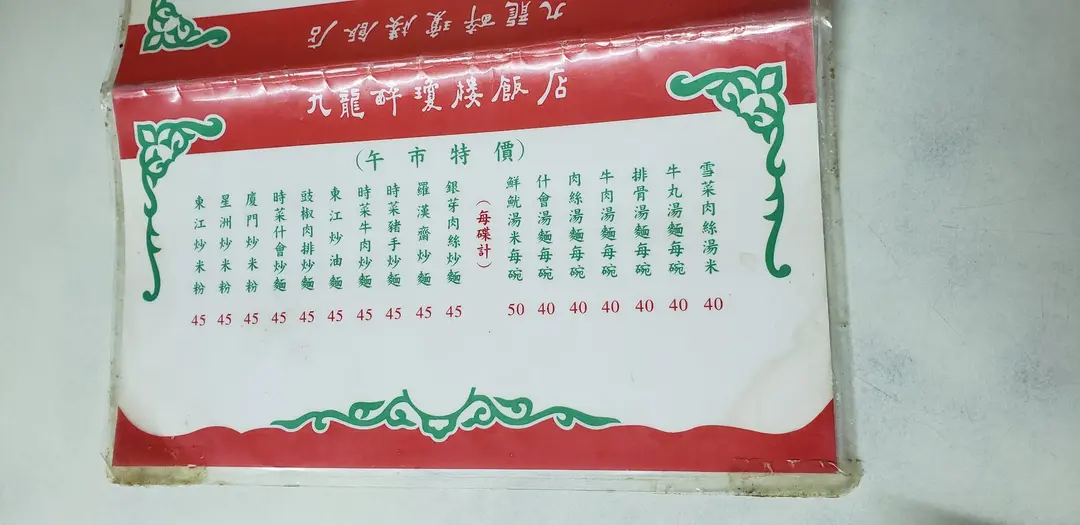 九龍酔瓊楼飯店
九龍酔瓊楼飯店
(午市特價)
雪菜肉絲湯米 40
牛丸湯麵每碗 40
排骨湯麵每碗 40
牛肉湯麵每碗 40
肉絲湯麵每碗 40
什會湯麵每碗 40
鮮魷湯米每碗 50
(每碟計)
銀芽肉絲炒麵 45
羅漢齋炒麵 45
時菜豬手炒麵 45
時菜牛肉炒麵 45
東江炒油麵 45
豉椒肉排炒麵 45
時菜什會炒麵 45
廈門炒米粉 45
星洲炒米粉 45
東江炒米粉 45